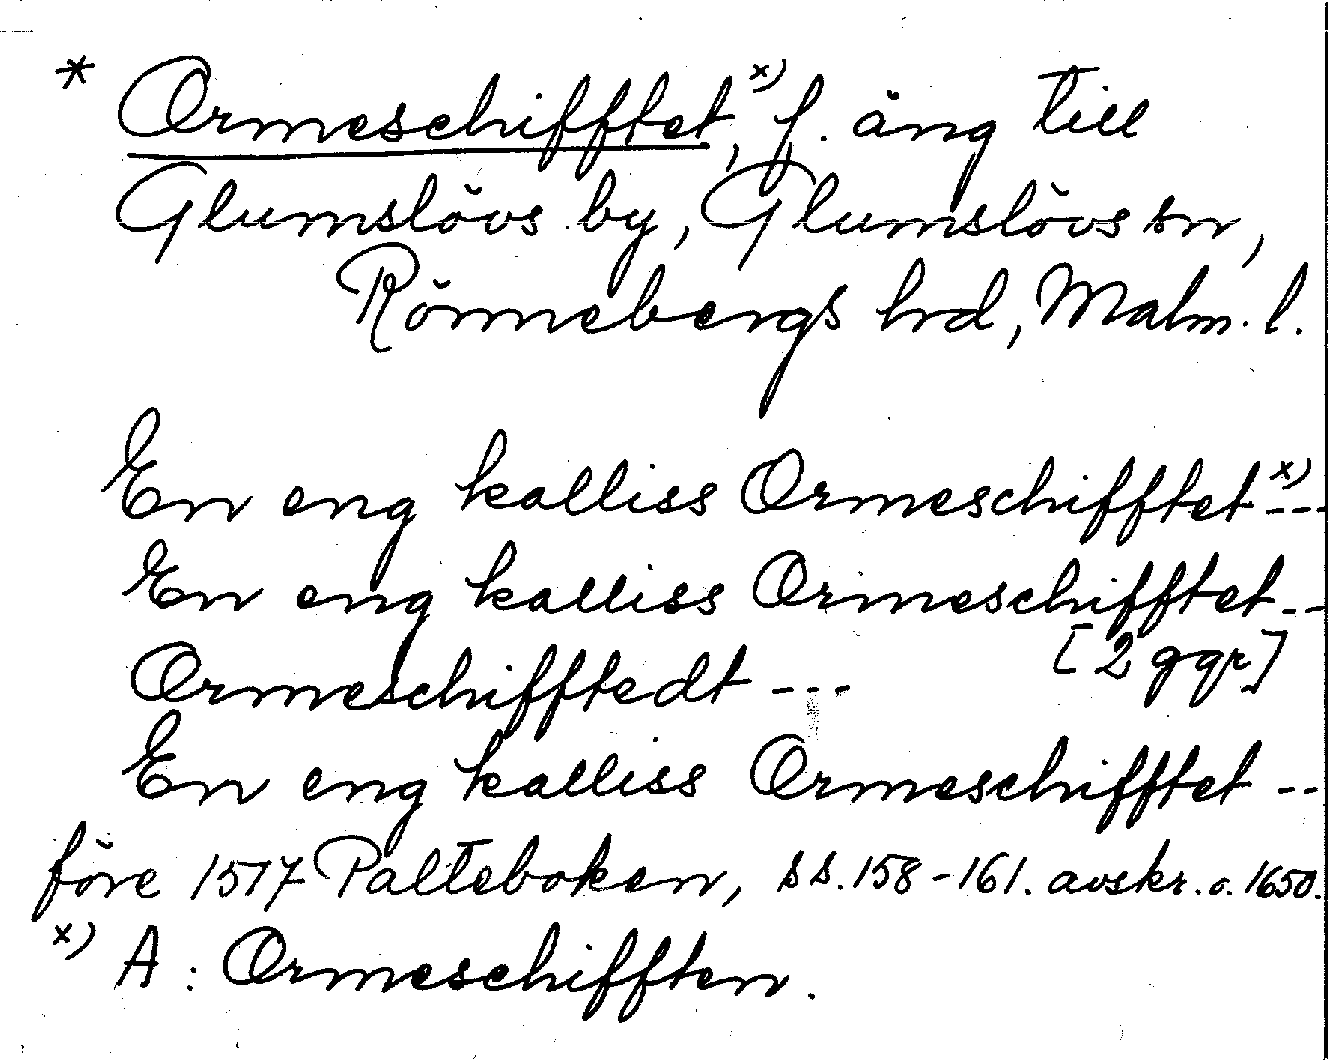 * Ormeschifftet,x) f. äng till
Glumslövs by, Glumslövs sn,
Rönnebergs hrd, Malm. l.
En eng kalliss Ormeschifftet x) ---
En eng kalliss Ormeschifftet --
[2 ggr]
Ormeschifftedt ---
En eng kalliss Ormeschifftet --
före 1517 Palteboken, ss. 158-161. avskr. o. 1650.
x) A: Ormeschifften.